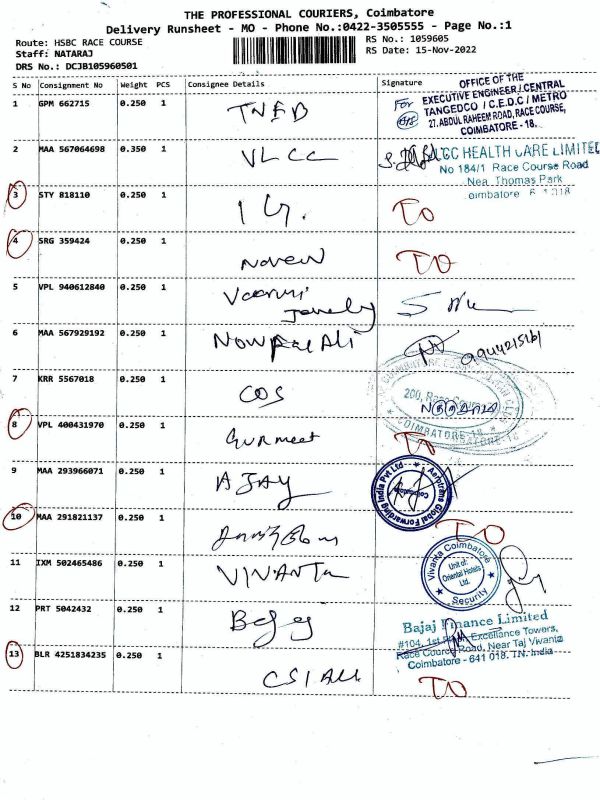 THE PROFESSIONAL COURIERS, Coimbatore
Delivery Runsheet - MO - Phone No.:0422-3505555 - Page No.:1
Route: HSBC RACE COURSE
RS No.: 1059605
Staff: NATARAJ
RS Date: 15-Nov-2022
DRS No.: DCJB105960501
S No Consignment No Weight PCS Consignee Details Signature
OFFICE OF THE
EXECUTIVE ENGINEER / CENTRAL
TANGEDCO / C.E.D.C / METRO
27, ABDUL RAHEEM ROAD, RACE COURSE,
COIMBATORE - 18.
For
1 GPM 662715 0.250 1 TNEB
2 MAA 567064698 0.350 1 VLCC
LCC HEALTH CARE LIMITED
No 184/1 Race Course Road
Nea Thomas Park
oimbatore 6 1 018
3 STY 818110 0.250 1 TO
4 SRG 359424 0.250 1 TO
5 VPL 940612840 0.250 1
6 MAA 567929192 0.250 1
7 KRR 5567018 0.250 1 COS
200, Race
COIMBATORE-18
8 VPL 400431970 0.250 1 Gurmeet TO
9 MAA 293966071 0.250 1 AJAY
Aerotrans Global Forwarding India Pvt Ltd
Coimbatore
10 MAA 291821137 0.250 1 TO
11 IXM 502465486 0.250 1 VIVANTA
Vivanta Coimbatore
Unit of:
Oriental Hotels
Ltd.
Security
12 PRT 5042432 0.250 1
Bajaj Finance Limited
#104, 1st Floor, Excellence Towers,
Race Course Road, Near Taj Vivanta
Coimbatore - 641 018. TN. India
13 BLR 4251834235 0.250 1 TO